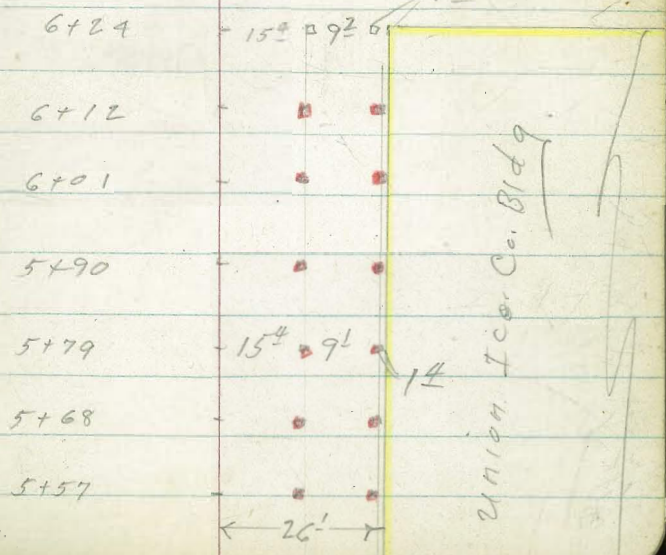 6+24 15⁴ 9²
6+12
6+01
5+90
5+79 15⁴ 9¹ 1⁴
5+68
5+57
26'
Union Ice Co. Bldg.